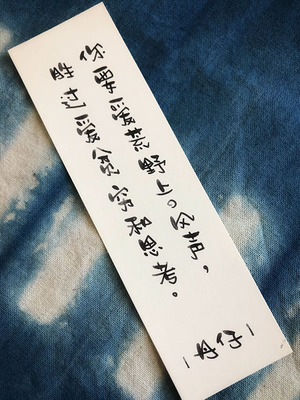 你要愛荒野上の风声，
胜过愛贫穷和思考。
-丹仔-